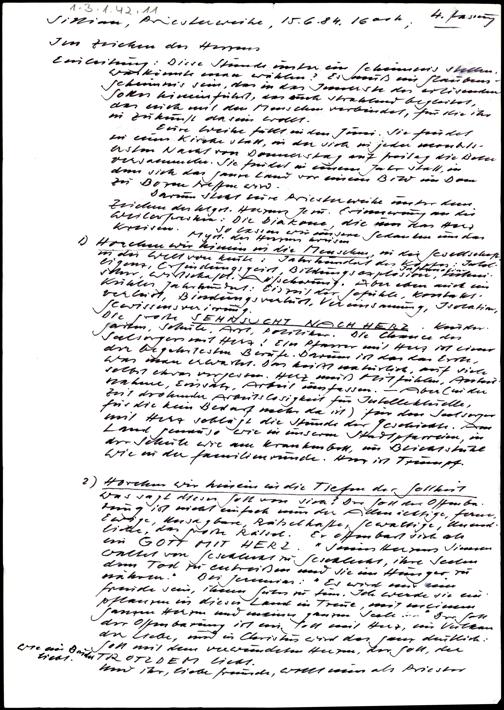 1.3.1.42.11
Sillian, Priesterweihe, 15.6.84. 16 Uhr, 4. Fassung
Im Zeichen des Herzens
Einleitung: Diese Stunde unter ein Geheimnis stellen,
was könnte man wählen? Es muß ein Glaubens-
geheimnis sein, das in das Innerste des erlösenden
Gottes hineinführt, das euch strahlend begleitet,
das euch mit den Menschen verbindet, für die ihr
in Zukunft da sein wollt.
Eure Weihe fällt in den Juni. Sie findet
in einer Kirche statt, in der sich in jeder monats-
ersten Nacht von Donnerstag auf Freitag die Beter
versammeln. Sie findet in einem Jahr statt, in
dem sich das ganze Land vor einem Bild im Dom
zu Bozen treffen wird.
Darum steht eure Priesterweihe unter dem
Zeichen des hlgst. Herzens Jesu. Erinnerung an die
kreisen. So lassen wir unsere Gedanken um das
Myst. des Herzens kreisen
1) Horchen wir hinein in die Menschen, in die Gesellschaft
in die Welt von heute: Jahrhundert des Kopfes: Intel-
ligenz, Erfindungsgeist, Bildungsexplosion,
Wirtschaft, Forschung. Aber eben auch ein
kühles Jahrhundert. Eiszeit der Gefühle, Kontakt-
verlust, Bindungsverlust, Vereinsamung, Isolation,
Gewissensverirrung.
Die große SEHNSUCHT NACH HERZ. Kinder-
garten, Schule, Arzt, Politiker. Die Chance des
Seelsorgers mit Herz! Ein Pfarrer mit Herz ist einer
der begehrtesten Berufe. Darum ist das das Erste,
was man erwartet. Das heißt natürlich, auf sich
selbst etwas vergessen. Herz muß Mitfühlen, Anteil-
nahme, Einsatz, Arbeit umfassen. – Aber (in der
Zeit drohender Arbeitslosigkeit für Intellektuelle,
für die kein Bedarf mehr da ist) für den Seelsorger
mit Herz schlägt die Stunde der Geschichte. Am
Land genauso wie in unseren Stadtpfarreien, in
der Schule wie am Krankenbett, im Beichtstuhl
wie in der Familienrunde. Herz ist Trumpf.
2) Horchen wir hinein in die Tiefen der Gottheit
was sagt dieser Gott von sich? Der Gott der Offenba-
rung ist nicht einfach nur der Allmächtige, Ferne,
Ewige, Unsagbare, Rätselhafte, Gewaltige, Unend-
liche, das große Rätsel. Er offenbart sich als
ein GOTT MIT HERZ. "Seines Herzens Sinnen
waltet von Geschlecht zu Geschlecht, ihre Seelen
dem Tod zu entreißen und sie im Hunger zu
nähren." Bei Jeremias: "Es wird mir eine
Freude sein, ihnen Gutes zu tun. Ich werde sie ein-
pflanzen in dieses Land in Treue, mit meinem
ganzen Herzen und meiner ganzen Seele..." Der Gott
der Offenbarung ist ein Gott mit Herz, ein Vulkan
der Liebe, und in Christus wird das ganz deutlich:
Gott mit dem verwundeten Herzen, der Gott, der
TROTZDEM liebt.
wie ein
liebt.
Und ihr, liebe Freunde, wollt nun als Priester